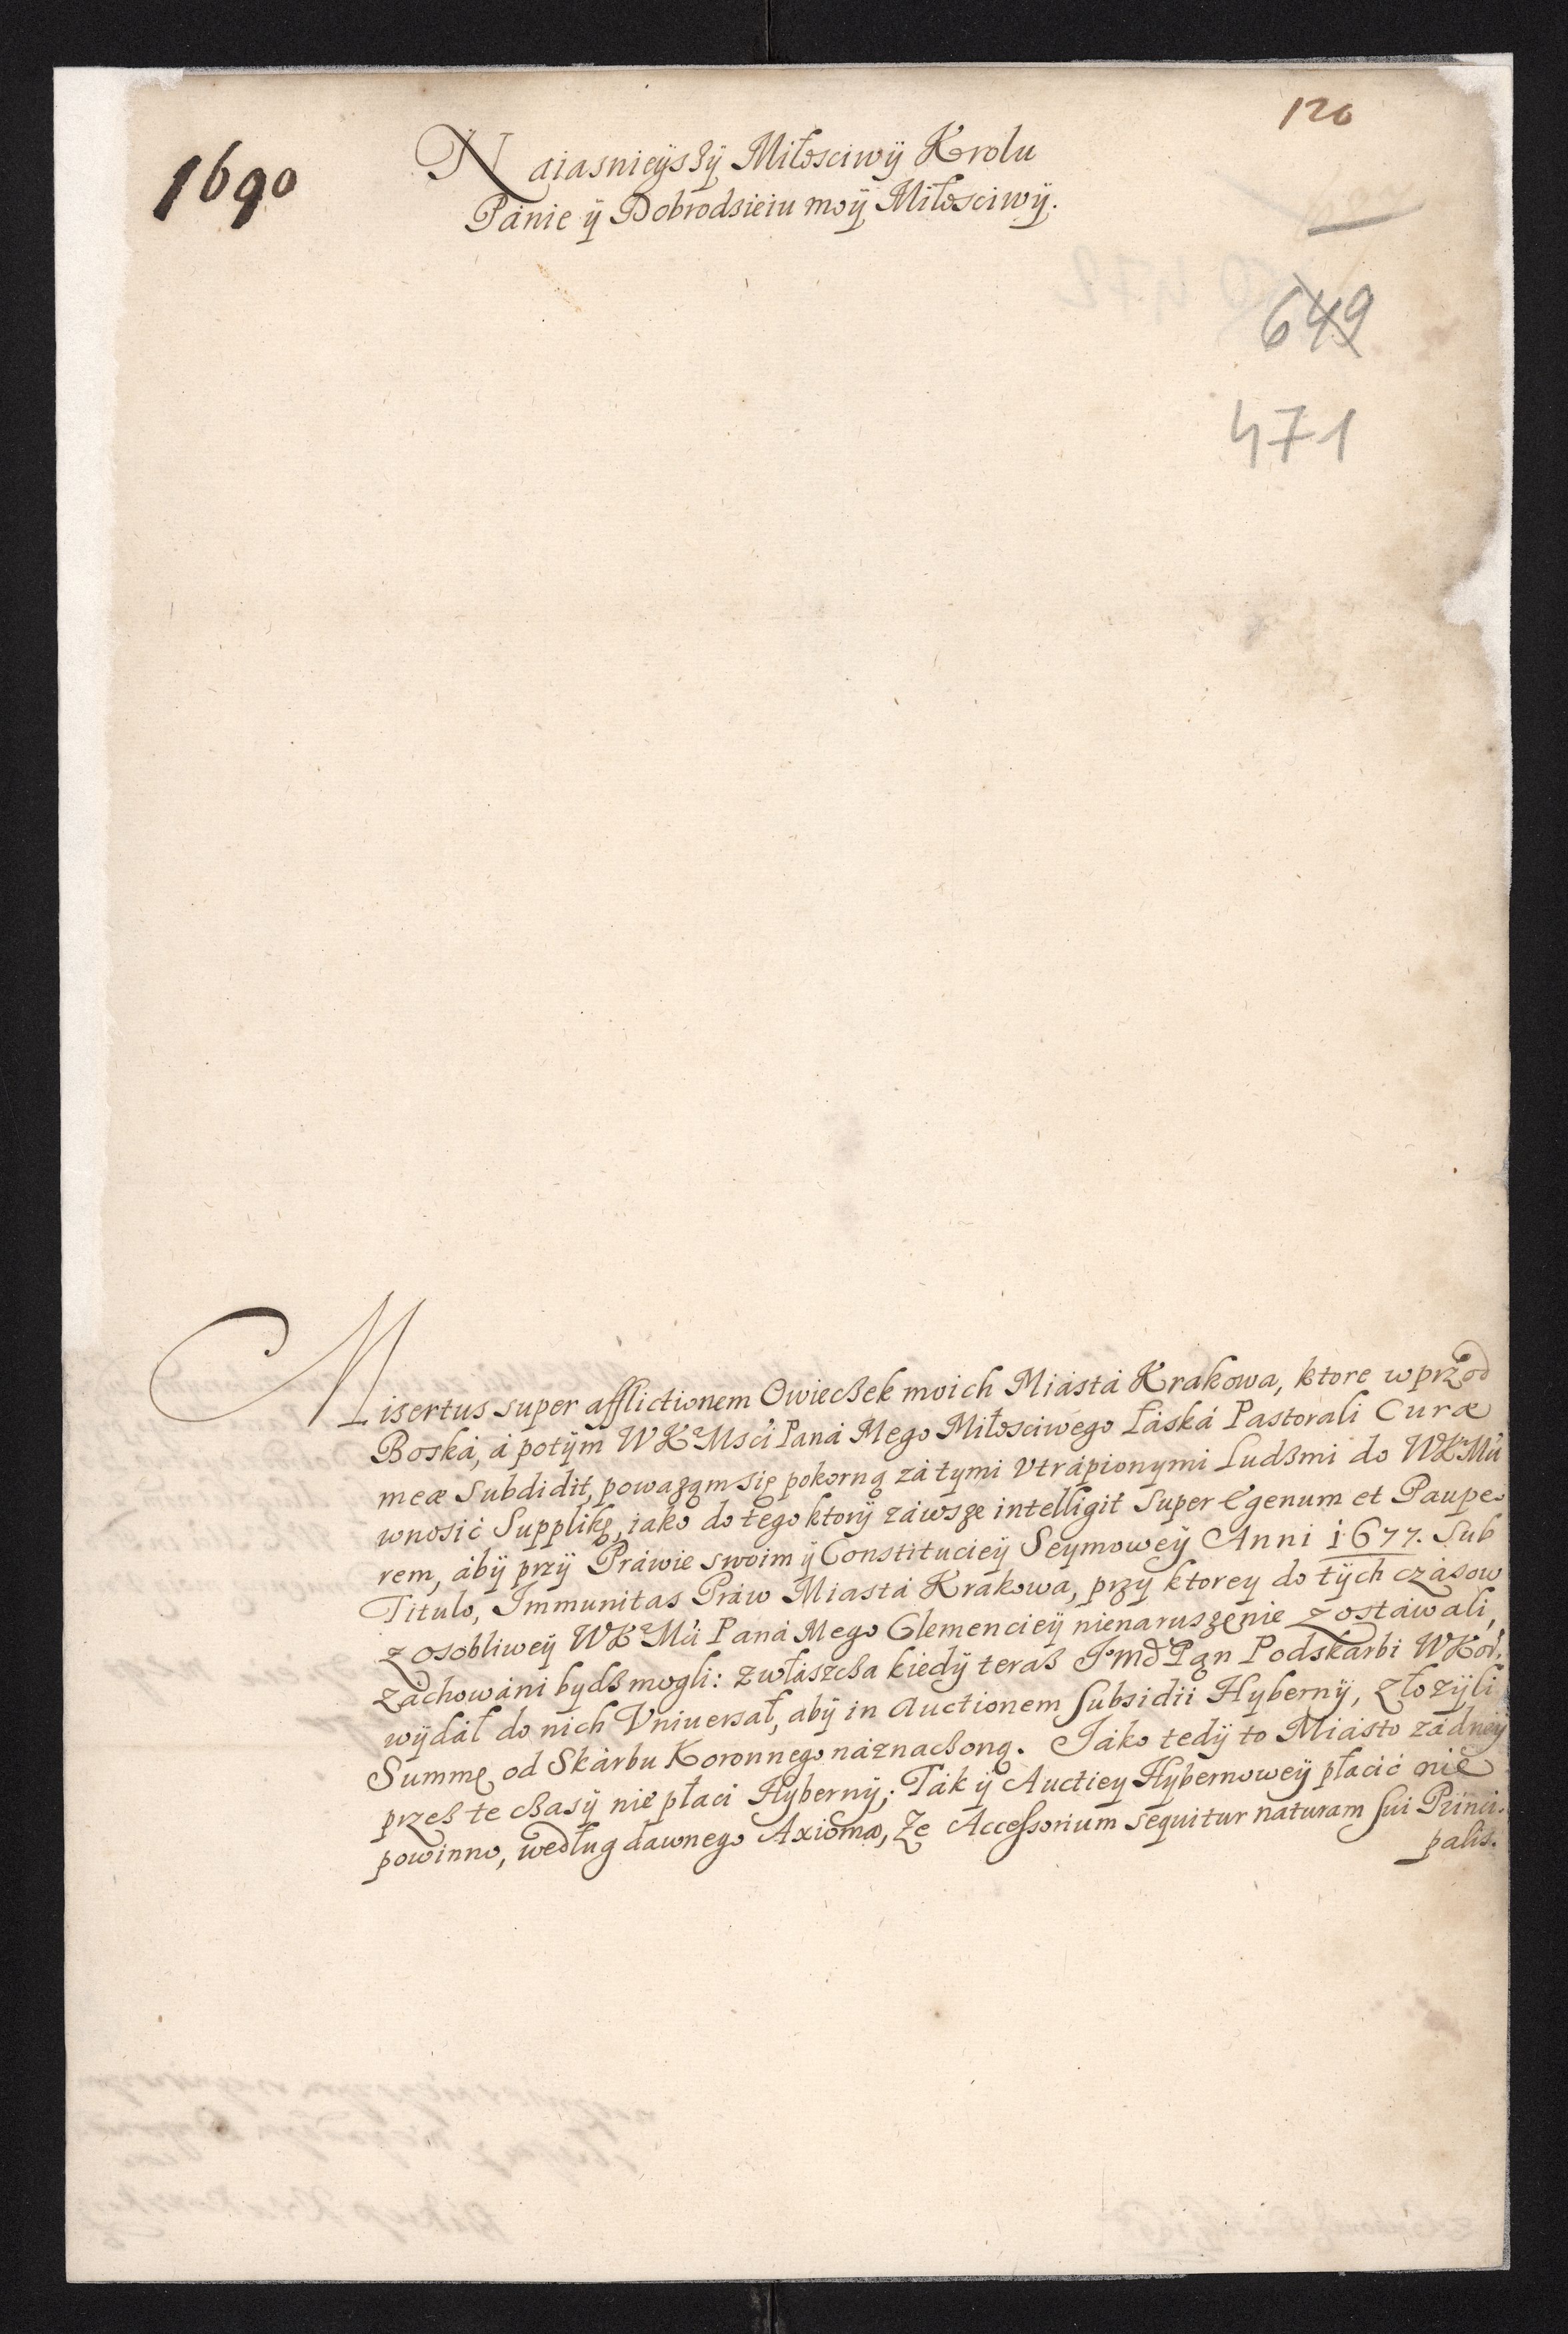 120
1690
Naiasnieÿszÿ Miłosciwÿ Krolu
Pánie ÿ Dobrodzieiu moÿ Miłosciwÿ.
649
471
Misertus super afflictionem Owieczek moich Miástá Krakowa, ktore wprzod
Boská, á potÿm WKMsći Paná Mego Miłosciwego Łáská Pastorali Curæ
meæ Subdidit, powazam się pokorną zá tymi Vtrápionymi Ludzmi do WKMći
wnosić Supplikę, iako do tego ktorÿ záwsze intelligit Super Egenum et Paupe-
rem, ábÿ przÿ Práwie swoim ÿ Constituciey Seymoweÿ Anni 1677. Sub
Titulo, Immunitas Praw Miastá Krakowa, przy ktorey do tÿch czásow
z osobliweÿ WKMći Paná Mego Clemencieÿ nienaruszenie zostáwali,
záchowáni bydz mogli: zwłászcza kiedÿ teraz Jmć Pan Podskarbi WKor.
wÿdáł do nich Vniuersał, abÿ in Auctionem Subsidii Hybernÿ, złozÿli
Summę od Skárbu Koronnego náznaczoną. Iáko tedÿ to Miásto zadneÿ
przez te czasÿ nie płaci Hybernÿ; Ták ÿ Auctiey Hÿbernoweÿ płacić nie
powinno, według dawnego Axioma, Ze Accessorium sequitur naturam sui Princi-
palis.